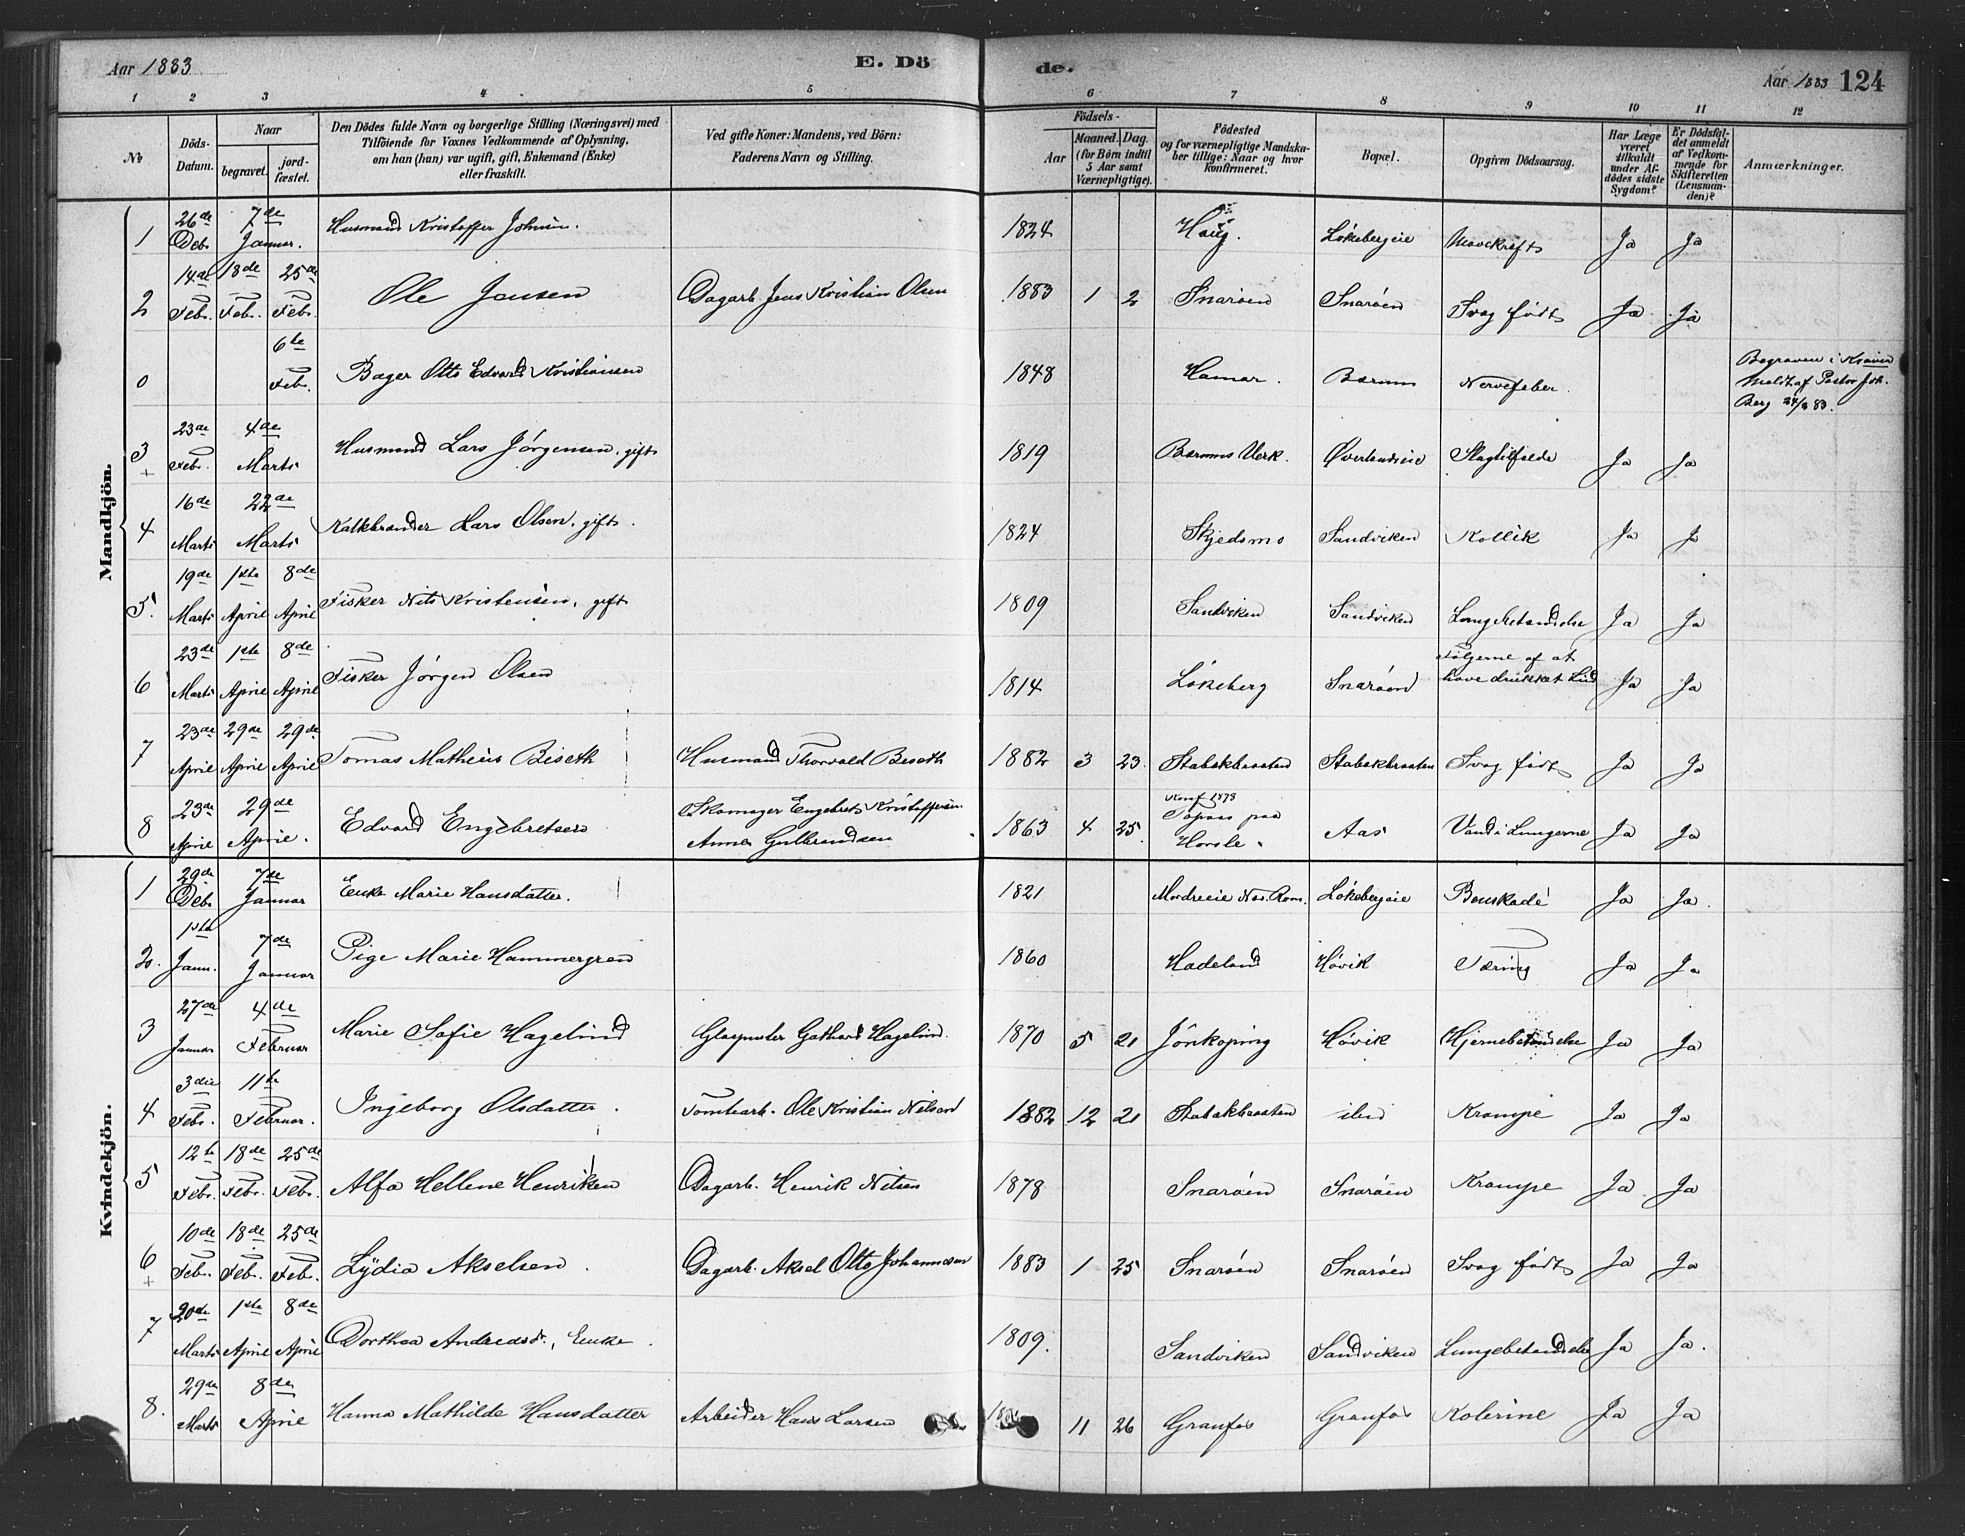 Aar 1883 E. Dö de. Aar 1883 124
1 2 3 4 5 6 7 8 9 10 11 12
№ Döds-Datum. Naar begravet. jord-fæstet. Den Dödes fulde Navn og borgerlige Stilling (Næringsvei) med Tilföiende for Voxnes Vedkommende af Oplysning, om han (hun) var ugift, gift, Enkemand (Enke) eller fraskilt. Ved gifte Koner: Mandens, ved Börn: Faderens Navn og Stilling. Födsels- Aar Maaned. Dag. (for Börn indtil 5 Aar samt Værnepligtige). Födested og for værnepligtige Mandskaber tillige: Naar og hvor konfirmeret. Bopæl. Opgiven Dödsaarsag. Har Læge været tilkaldt under Afdödes sidste Sygdom? Er Dödsfaldet anmeldt af Vedkommende for Skifteretten (Lensmanden)? Anmærkninger.
Mandkjön.
1 26de Debr 7de Januar. Husmand Kristoffer Johnsen. 1824 Haug. Løkebergeie Mavekræft Ja Ja
2 14de Febr. 18de Febr. 25de Febr. Ole Jensen Dagarb. Jens Kristian Olsen 1883 1 2 Snarøen Snarøen Svag født Ja Ja
0 6te Feb. Bager Otto Edvard Kristiansen 1848 Hamar. Bærum Nervefeber. Begraven i Meldt af Pastor Joh. Berg 83.
3 + 23de Febr. 4de Marts Husmand Lars Jørgensen, gift 1819 Bærums Verk. Øverlandseie Slagtilfælde Ja Ja
4 16de Marts 22de Marts Kalkbrænder Lars Olsen, gift. 1824 Skjedsmo Sandviken Kollik Ja Ja
5. 19de Marts 1ste April 8de April Fisker Nils Kristensen, gift 1809 Sandviken Sandviken Lungebetændelse Ja Ja
6 23de Marts 1ste April 8de April Fisker Jørgen Olsen 1814 Løkeberg Snarøen Følgerne af at have drukket Lud Ja Ja
7 23de April 29de April 29de April Tomas Matheus Biseth Husmand Thorvald Biseth 1882 3 23. Stabækbraaten Stabækbraaten Svag født Ja Ja
8 23de April 29de April. Edvard Engebretsen Skomager Engebret Kristoffersen Anne Gulbrandsen 1863 4 25 Konf 1878 Topaas paa Horsle. Aas Vand i Lungerne Ja Ja
Kvindekjön.
1 29de Debr 7de Januar Enke Marie Hansdatter. 1821 Løkebergeie Benskade Ja Ja.
2. 1ste Janu. 7de Januar Pige Marie Hammergren 1860 Hadeland Høvik Tæring Ja Ja
3 27de Januar 4de Februar Marie Sofie Hagelind Glaspuster Gothard Hagelind. 1870 5 21 Jønkoping Høvik Hjernebetændelse Ja Ja
4 3die Febr. 11te Februar. Ingeborg Olsdatter. Tomtearb. Ole Kristian Nilsen 1882 12 21 Stabækbraaten ibid Krampe Ja Ja
5 12te Febr. 18de Febr. 25de Febr. Alfa Hellene Henriken Dagarb. Henrik Nilsen 1878 Snarøen Snarøen Krampe Ja Ja
6 + 10de Febr. 18de Febr. 25de Febr. Lydia Akselsen. Dagarb. Aksel Otto Johannesen 1883 1 25 Snarøen Snarøen Svag født Ja Ja
7 20de Marts 1ste April 8de April Dorthea Andreasd., Enke. 1809. Sandviken Sandviken Lungebetændelse Ja Ja.
8. 29de Marts 8de April Hanna Mathilde Hansdatter Arbeider Hans Larsen 11 26 Granfos Granfos Kolerine Ja Ja